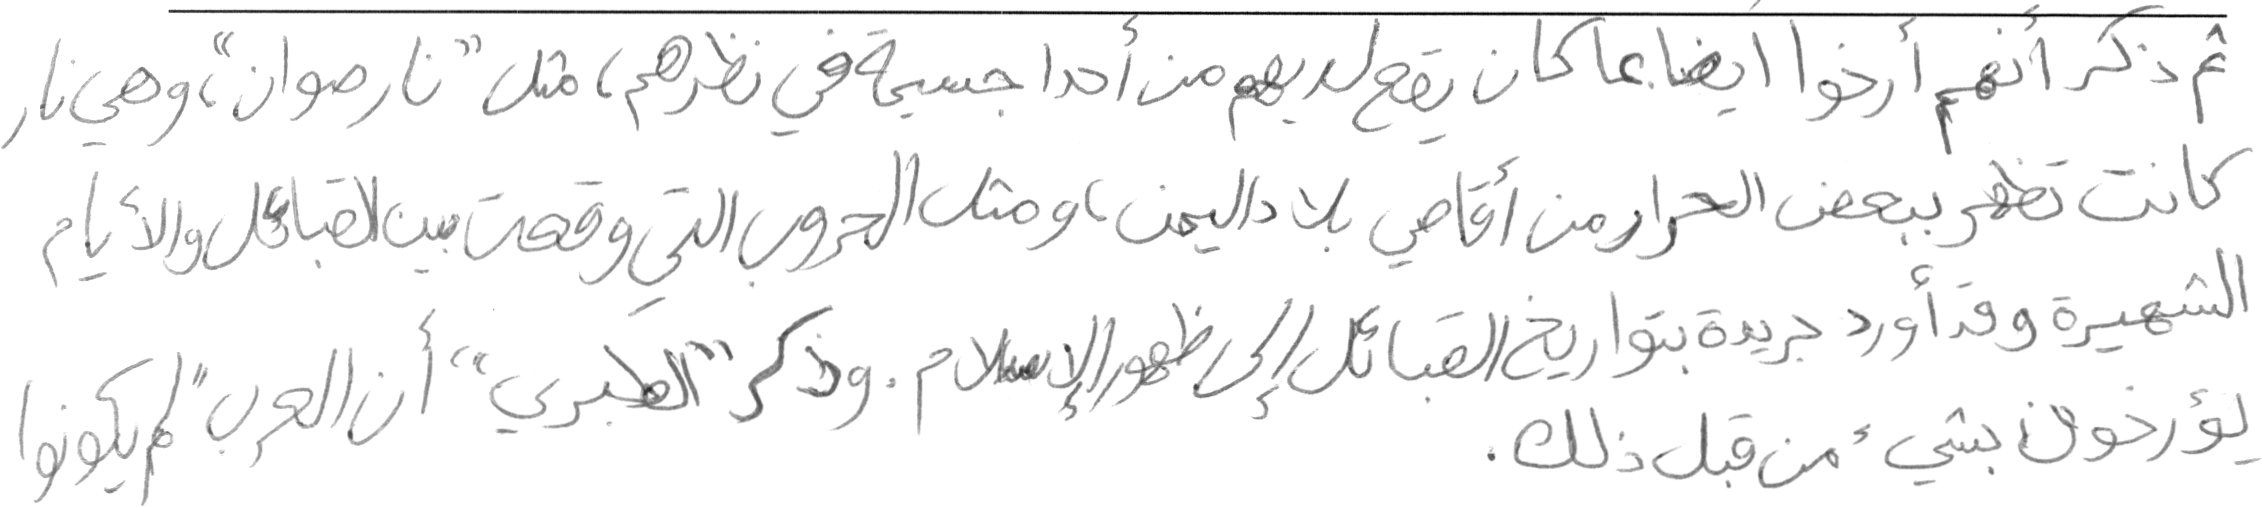 ثم ذكر أنهم أرخوا ايضا بما كان يقع لديهم من أحدا جسيمة في نظرهم، مثل "نار صوان"، وهي نار
كانت تظهر ببعض الحرار من أقاصي بلاد اليمن، ومثل الحروب التي وقعت بين القبائل والأيام
الشهيرة وقد أورد جريدة بتواريخ القبائل إلى ظهور الإسلام. وذكر "الطبري" أن العرب "لم يكونوا
يؤرخون بشيء من قبل ذلك.